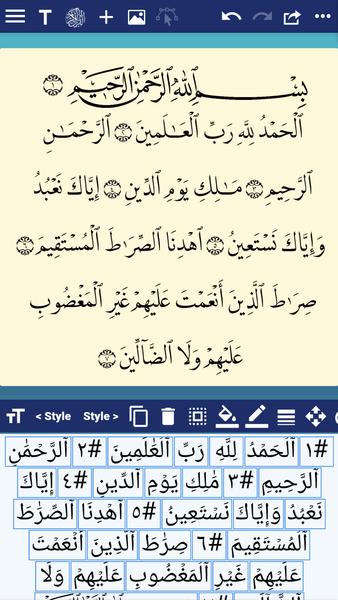 بِسْمِ ٱللَّهِ ٱلرَّحْمَٰنِ ٱلرَّحِيمِ ١
ٱلْحَمْدُ لِلَّهِ رَبِّ ٱلْعَـٰلَمِينَ ٢ ٱلرَّحْمَـٰنِ
ٱلرَّحِيمِ ٣ مَـٰلِكِ يَوْمِ ٱلدِّينِ ٤ إِيَّاكَ نَعْبُدُ
وَإِيَّاكَ نَسْتَعِينُ ٥ ٱهْدِنَا ٱلصِّرَٰطَ ٱلْمُسْتَقِيمَ ٦
صِرَٰطَ ٱلَّذِينَ أَنْعَمْتَ عَلَيْهِمْ غَيْرِ ٱلْمَغْضُوبِ
عَلَيْهِمْ وَلَا ٱلضَّآلِّينَ ٧
< Style Style >
#١ ٱلْحَمْدُ لِلَّهِ رَبِّ ٱلْعَٰلَمِينَ #٢ ٱلرَّحْمَٰنِ
ٱلرَّحِيمِ #٣ مَٰلِكِ يَوْمِ ٱلدِّينِ #٤ إِيَّاكَ
نَعْبُدُ وَإِيَّاكَ نَسْتَعِينُ #٥ ٱهْدِنَا ٱلصِّرَٰطَ
ٱلْمُسْتَقِيمَ #٦ صِرَٰطَ ٱلَّذِينَ أَنْعَمْتَ
عَلَيْهِمْ غَيْرِ ٱلْمَغْضُوبِ عَلَيْهِمْ وَلَا